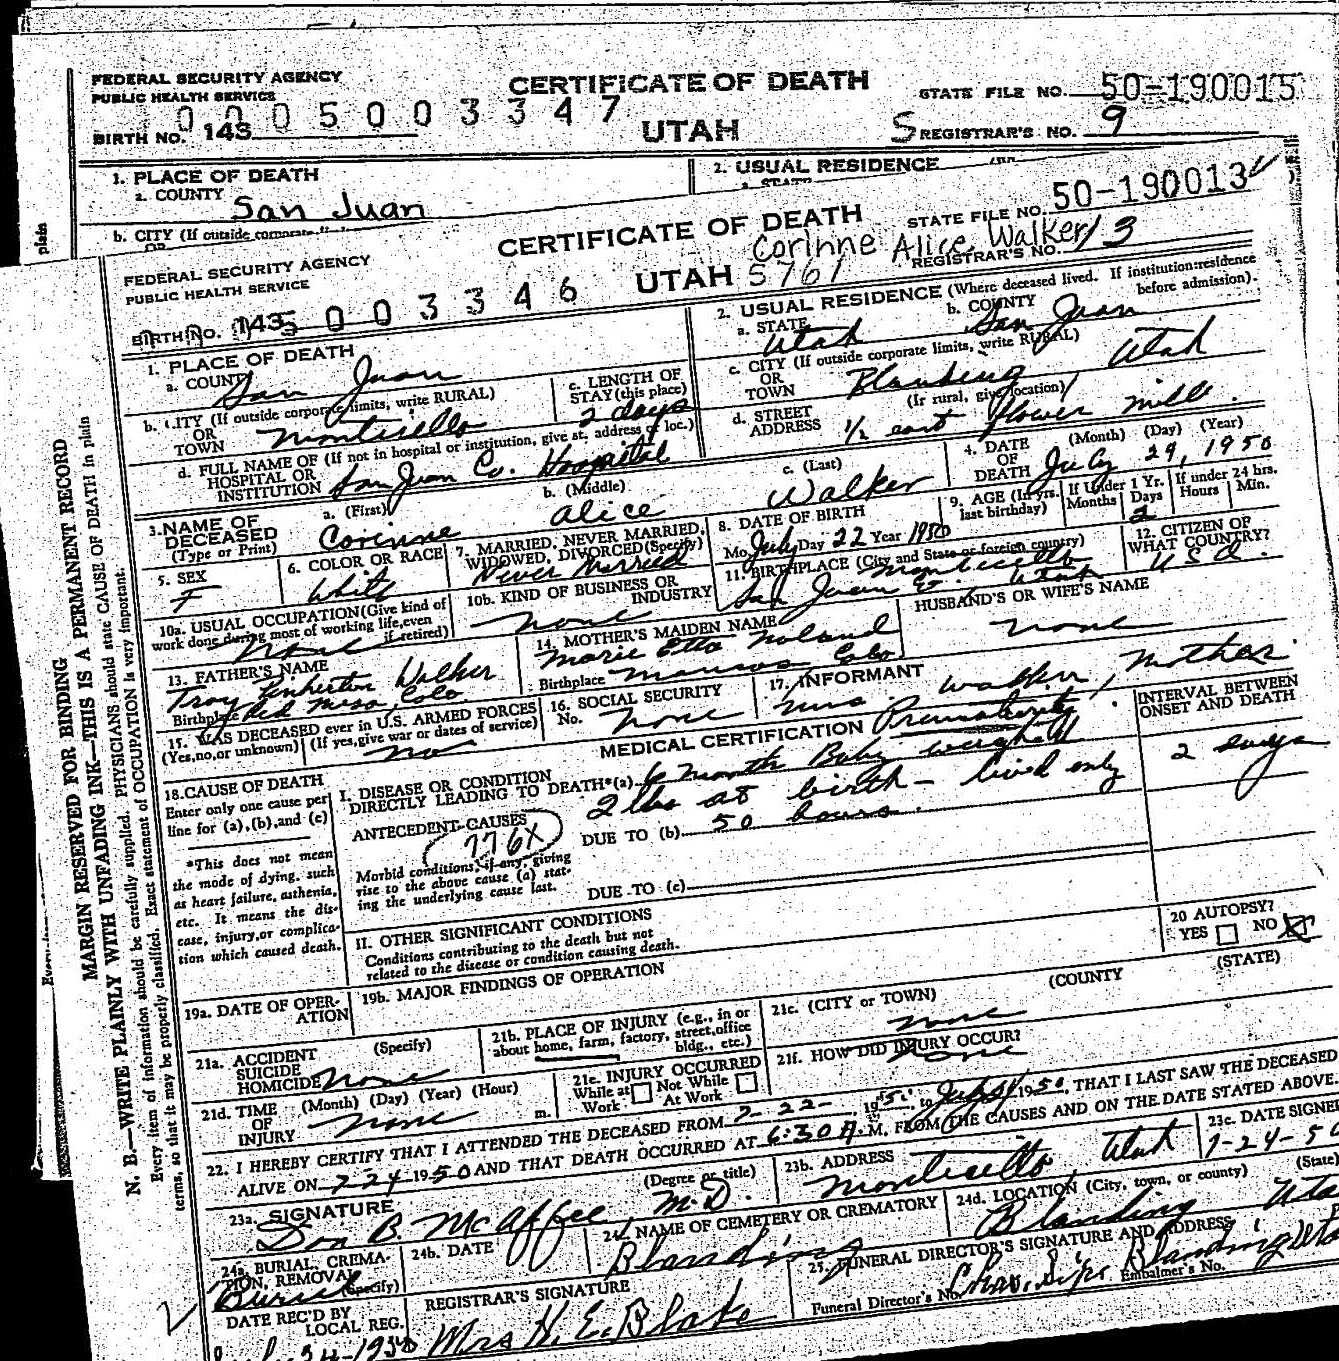 FEDERAL SECURITY AGENCY
PUBLIC HEALTH SERVICE
CERTIFICATE OF DEATH
STATE FILE NO. 50-190015
0005003347
BIRTH NO. 143
UTAH
S REGISTRAR'S NO. 9
1. PLACE OF DEATH
a. COUNTY San Juan
2. USUAL RESIDENCE
a. STATE
b. CITY (If outside corporate
OR
plain
CERTIFICATE OF DEATH
STATE FILE NO. 50-190013
Corinne Alice Walker
FEDERAL SECURITY AGENCY
PUBLIC HEALTH SERVICE
UTAH 5761
REGISTRAR'S NO. 13
BIRTH NO. 143 5003346
1. PLACE OF DEATH
a. COUNTY San Juan
b. CITY (If outside corporate limits, write RURAL)
OR
TOWN Monticello
c. LENGTH OF
STAY (this place)
2 days
d. FULL NAME OF (If not in hospital or institution, give st. address or loc.)
HOSPITAL OR
INSTITUTION San Juan Co. Hospital
2. USUAL RESIDENCE (Where deceased lived. If institution: residence
before admission).
a. STATE Utah
b. COUNTY San Juan
c. CITY (If outside corporate limits, write RURAL)
OR
TOWN Blanding Utah
d. STREET
ADDRESS
(If rural, give location)
1/2 east flower mill.
3. NAME OF
DECEASED
(Type or Print)
a. (First) Corinne
b. (Middle) Alice
c. (Last) Walker
4. DATE
OF
DEATH
(Month) (Day) (Year)
July 29, 1950
5. SEX
F
6. COLOR OR RACE
White
7. MARRIED, NEVER MARRIED,
WIDOWED, DIVORCED (Specify)
Never Married
8. DATE OF BIRTH
Mo. July Day 22 Year 1950
9. AGE (In yrs.
last birthday)
If Under 1 Yr.
Months Days
2
If under 24 hrs.
Hours Min.
10a. USUAL OCCUPATION (Give kind of
work done during most of working life, even
if retired)
None
10b. KIND OF BUSINESS OR
INDUSTRY
none
11. BIRTHPLACE (City and State or foreign country)
Monticello
San Juan Co. Utah
12. CITIZEN OF
WHAT COUNTRY?
U S A.
13. FATHER'S NAME
Troy Walker
Birthplace Red Mesa, Colo
14. MOTHER'S MAIDEN NAME
Marie Etta Noland
Birthplace Mancos Colo
HUSBAND'S OR WIFE'S NAME
none
15. WAS DECEASED ever in U.S. ARMED FORCES
(Yes, no, or unknown) (If yes, give war or dates of service)
no
16. SOCIAL SECURITY
No. none
17. INFORMANT
Mrs Walker, Mother
MEDICAL CERTIFICATION
INTERVAL BETWEEN
ONSET AND DEATH
18. CAUSE OF DEATH
Enter only one cause per
line for (a), (b), and (c)
*This does not mean
the mode of dying, such
as heart failure, asthenia,
etc. It means the dis-
ease, injury, or complica-
tion which caused death.
I. DISEASE OR CONDITION
DIRECTLY LEADING TO DEATH*(a)
Prematurity
6 Month Baby weighed
2 lbs at birth - lived only
50 hours.
2 days
ANTECEDENT CAUSES
776X
Morbid conditions, if any, giving
rise to the above cause (a) stat-
ing the underlying cause last.
DUE TO (b)
DUE TO (c)
II. OTHER SIGNIFICANT CONDITIONS
Conditions contributing to the death but not
related to the disease or condition causing death.
20 AUTOPSY?
YES NO X
19a. DATE OF OPER-
ATION
19b. MAJOR FINDINGS OF OPERATION
21a. ACCIDENT
SUICIDE
HOMICIDE
(Specify)
none
21b. PLACE OF INJURY (e.g., in or
about home, farm, factory, street, office
bldg., etc.)
21c. (CITY or TOWN) (COUNTY (STATE)
none
21d. TIME
OF
INJURY
(Month) (Day) (Year) (Hour)
none m.
21e. INJURY OCCURRED
While at
Work
Not While
At Work
21f. HOW DID INJURY OCCUR?
none
22. I HEREBY CERTIFY THAT I ATTENDED THE DECEASED FROM 7-22- 1950, to July 1950, THAT I LAST SAW THE DECEASED
ALIVE ON 7-24 1950 AND THAT DEATH OCCURRED AT 6:30 A.M. FROM THE CAUSES AND ON THE DATE STATED ABOVE.
23a. SIGNATURE
(Degree or title)
Don B. McAffee, M.D.
23b. ADDRESS
Monticello, Utah
23c. DATE SIGNE
7-24-50
24a. BURIAL, CREMA-
TION, REMOVAL
(Specify)
Burial
24b. DATE
24c. NAME OF CEMETERY OR CREMATORY
Blanding
24d. LOCATION (City, town, or county) (State)
Blanding Uta
DATE REC'D BY
LOCAL REG.
REGISTRAR'S SIGNATURE
Mrs H. E. Blake
25. FUNERAL DIRECTOR'S SIGNATURE AND ADDRESS
Blanding
Funeral Director's No.
Embalmer's No.
MARGIN RESERVED FOR BINDING
N. B.—WRITE PLAINLY WITH UNFADING INK—THIS IS A PERMANENT RECORD
Every item of information should be carefully supplied. PHYSICIANS should state CAUSE OF DEATH in plain
terms, so that it may be properly classified. Exact statement of OCCUPATION is very important.